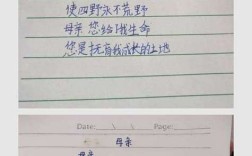 使四野永不荒野
母亲 您给我生命
您是抚育我成长的土地
Date: \ \ Page:
母亲
母亲